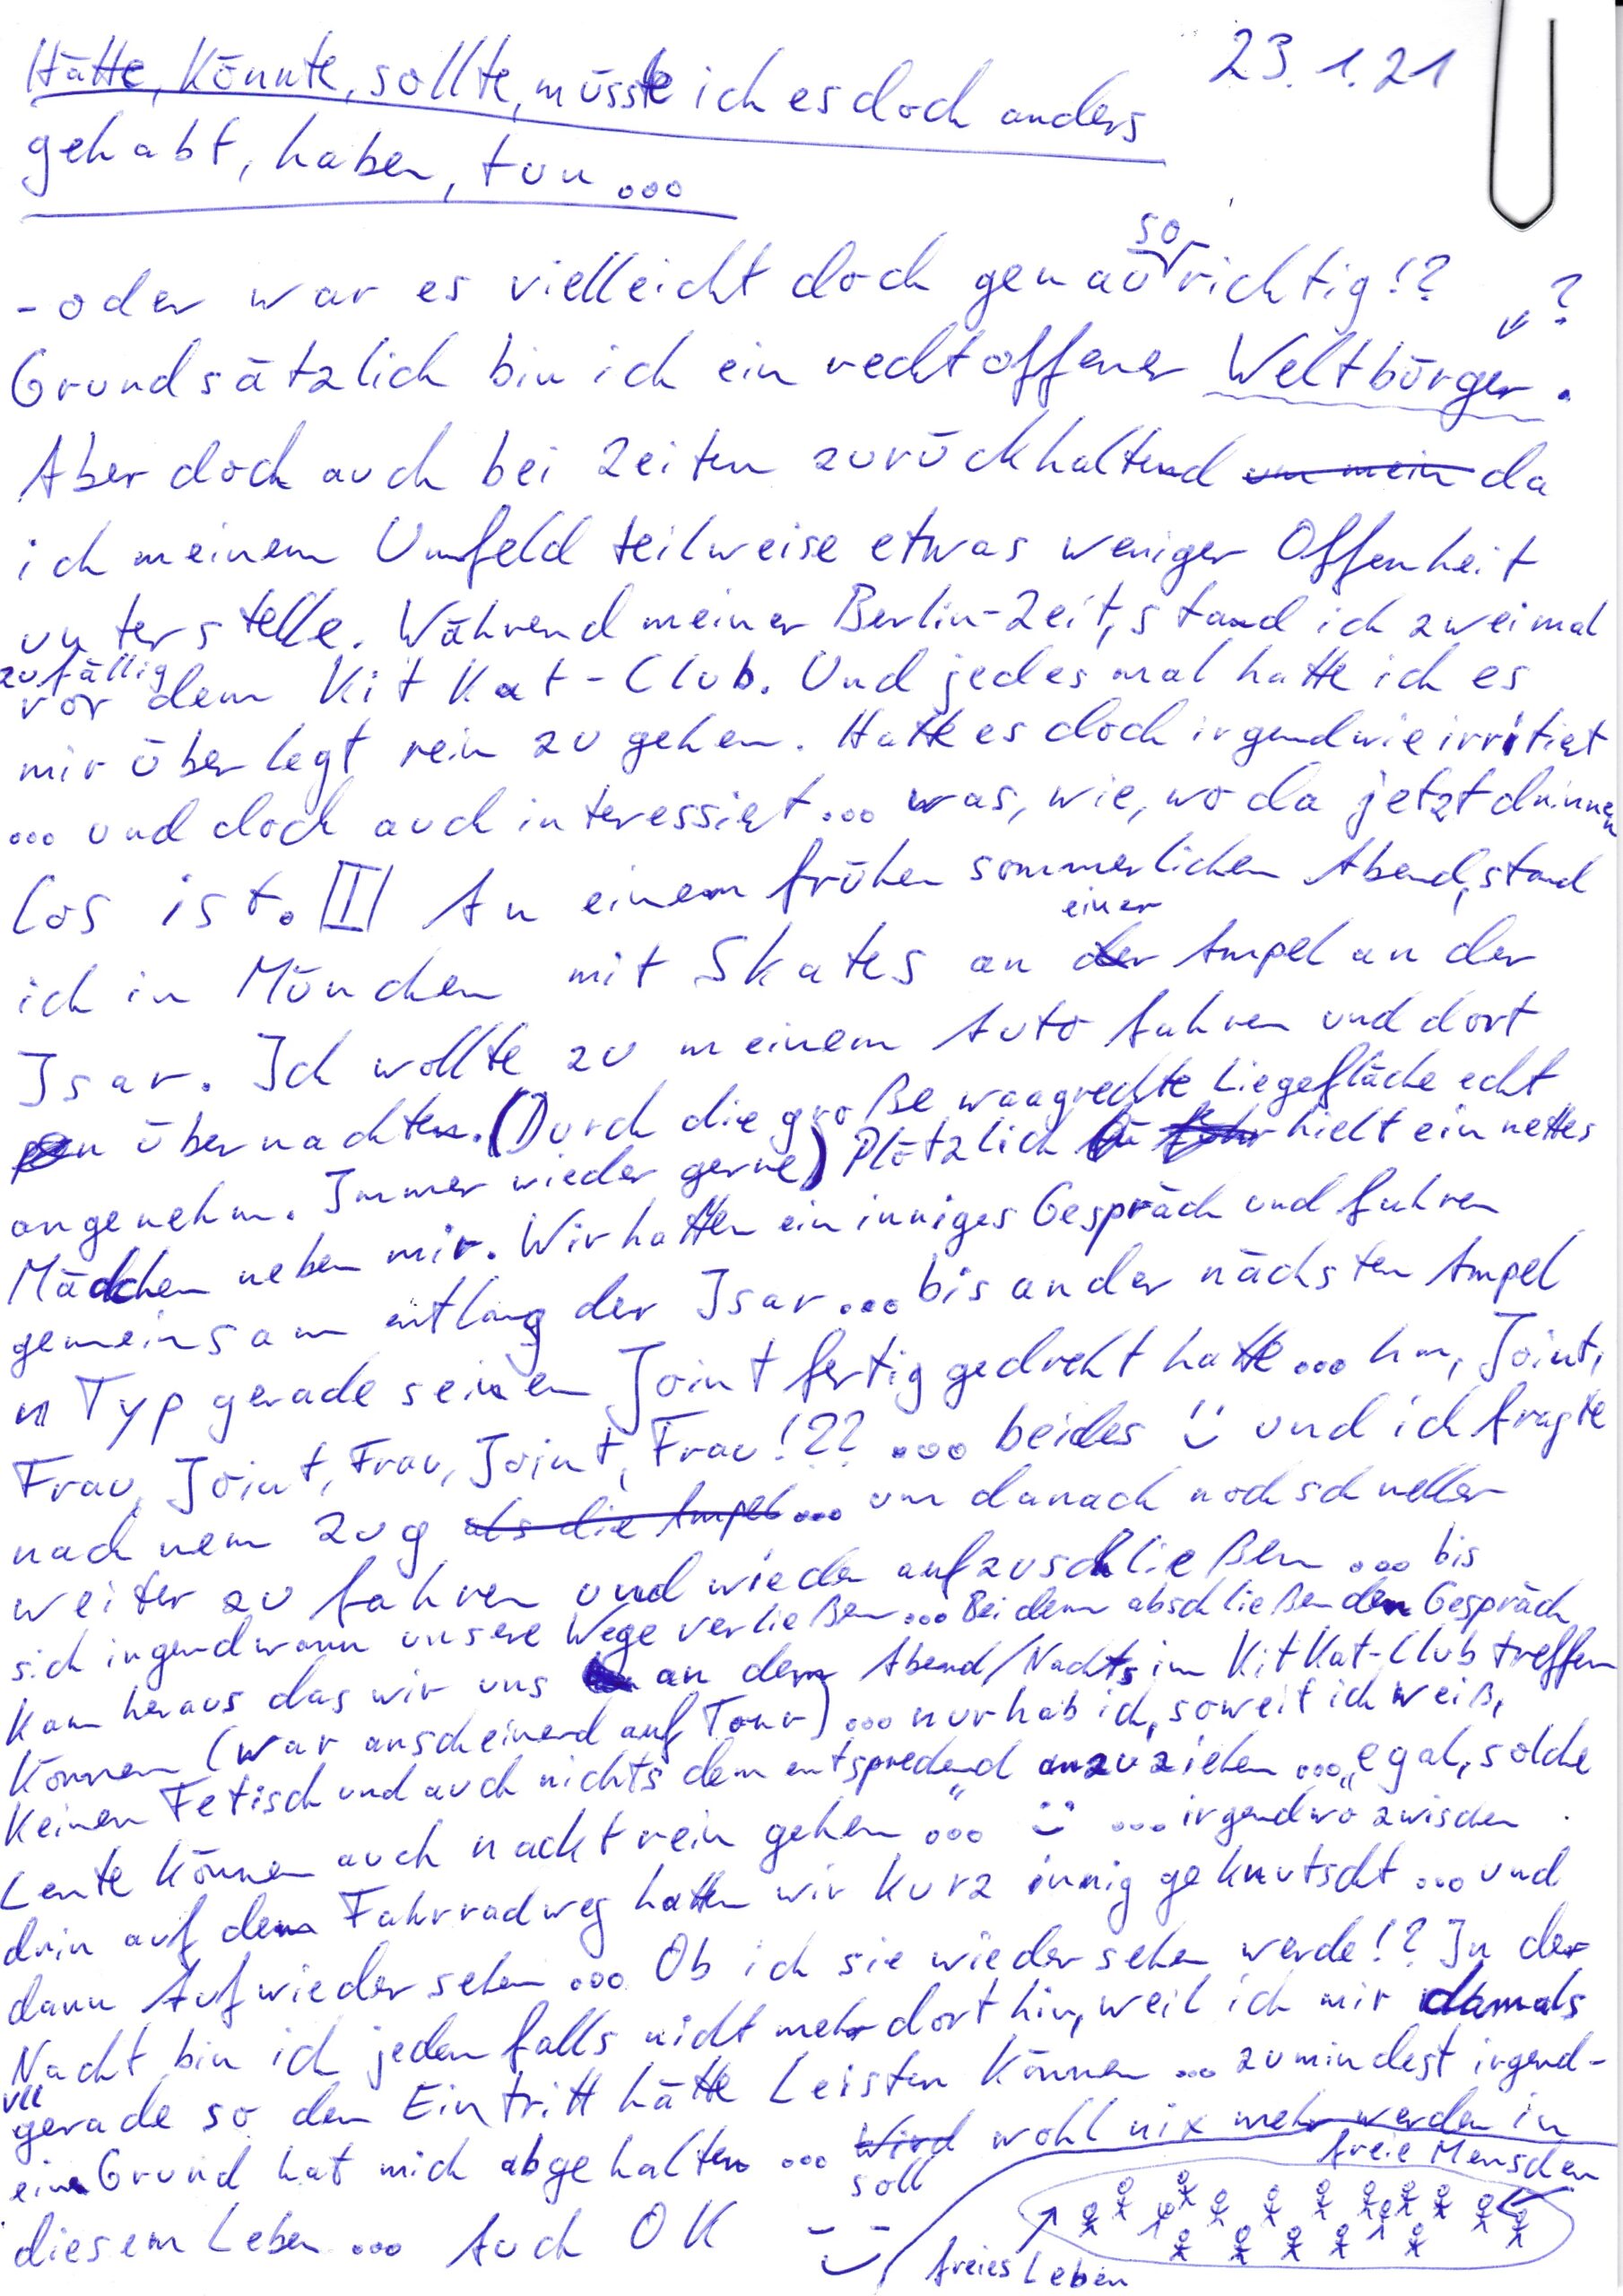 23.1.21
Hätte, könnte, sollte, müsste ich es doch anders
gehabt, haben, tun...
- oder war es vielleicht doch genau so richtig!?
?
Grundsätzlich bin ich ein recht offener Weltbürger.
Aber doch auch bei Zeiten zurückhaltend um mein da
ich meinem Umfeld teilweise etwas weniger Offenheit
unterstelle. Während meiner Berlin-Zeit, stand ich zweimal
zufällig
vor dem Kit Kat-Club. Und jedesmal hatte ich es
mir überlegt rein zu gehen. Hatte es doch irgendwie irritiert
... und doch auch interessiert... was, wie, wo da jetzt drinnen
los ist. II An einem frühen sommerlichen Abend, stand
ich in München mit Skates an der einer Ampel an der
Isar. Ich wollte zu meinem Auto fahren und dort
übernachten. (Durch die große waagrechte Liegefläche echt
angenehm. Immer wieder gerne) Plötzlich hielt ein nettes
Mädchen neben mir. Wir hatten ein inniges Gespräch und fuhren
gemeinsam entlang der Isar... bis an der nächsten Ampel
n Typ gerade seinen Joint fertig gedreht hatte... hm, Joint,
Frau, Joint, Frau, Joint, Frau!?? ... beides ü und ich fragte
nach nem Zug als die Ampel... um danach noch schneller
weiter zu fahren und wieder aufzuschließen ... bis
sich irgendwann unsere Wege verließen... Bei dem abschließenden Gespräch
kam heraus das wir uns an dem Abend/Nachts im KitKat-Club treffen
können (war anscheinend auf Tour) ... nur hab ich, soweit ich weiß,
keinen Fetisch und auch nichts dem entsprechend anzuziehen ... „egal, solche
Leute können auch nackt rein gehen"... ü ... irgendwo zwischen
drin auf dem Fahrradweg hatten wir kurz innig geknutscht ... und
dann Aufwiedersehen ... Ob ich sie wiedersehen werde!? In der
Nacht bin ich jedenfalls nicht mehr dort hin, weil ich mir damals
vll
gerade so den Eintritt hätte Leisten können ... zumindest irgend-
ein Grund hat mich abgehalten ... Wird soll wohl nix mehr werden in
diesem Leben ... Auch OK
freie Menschen
freies Leben